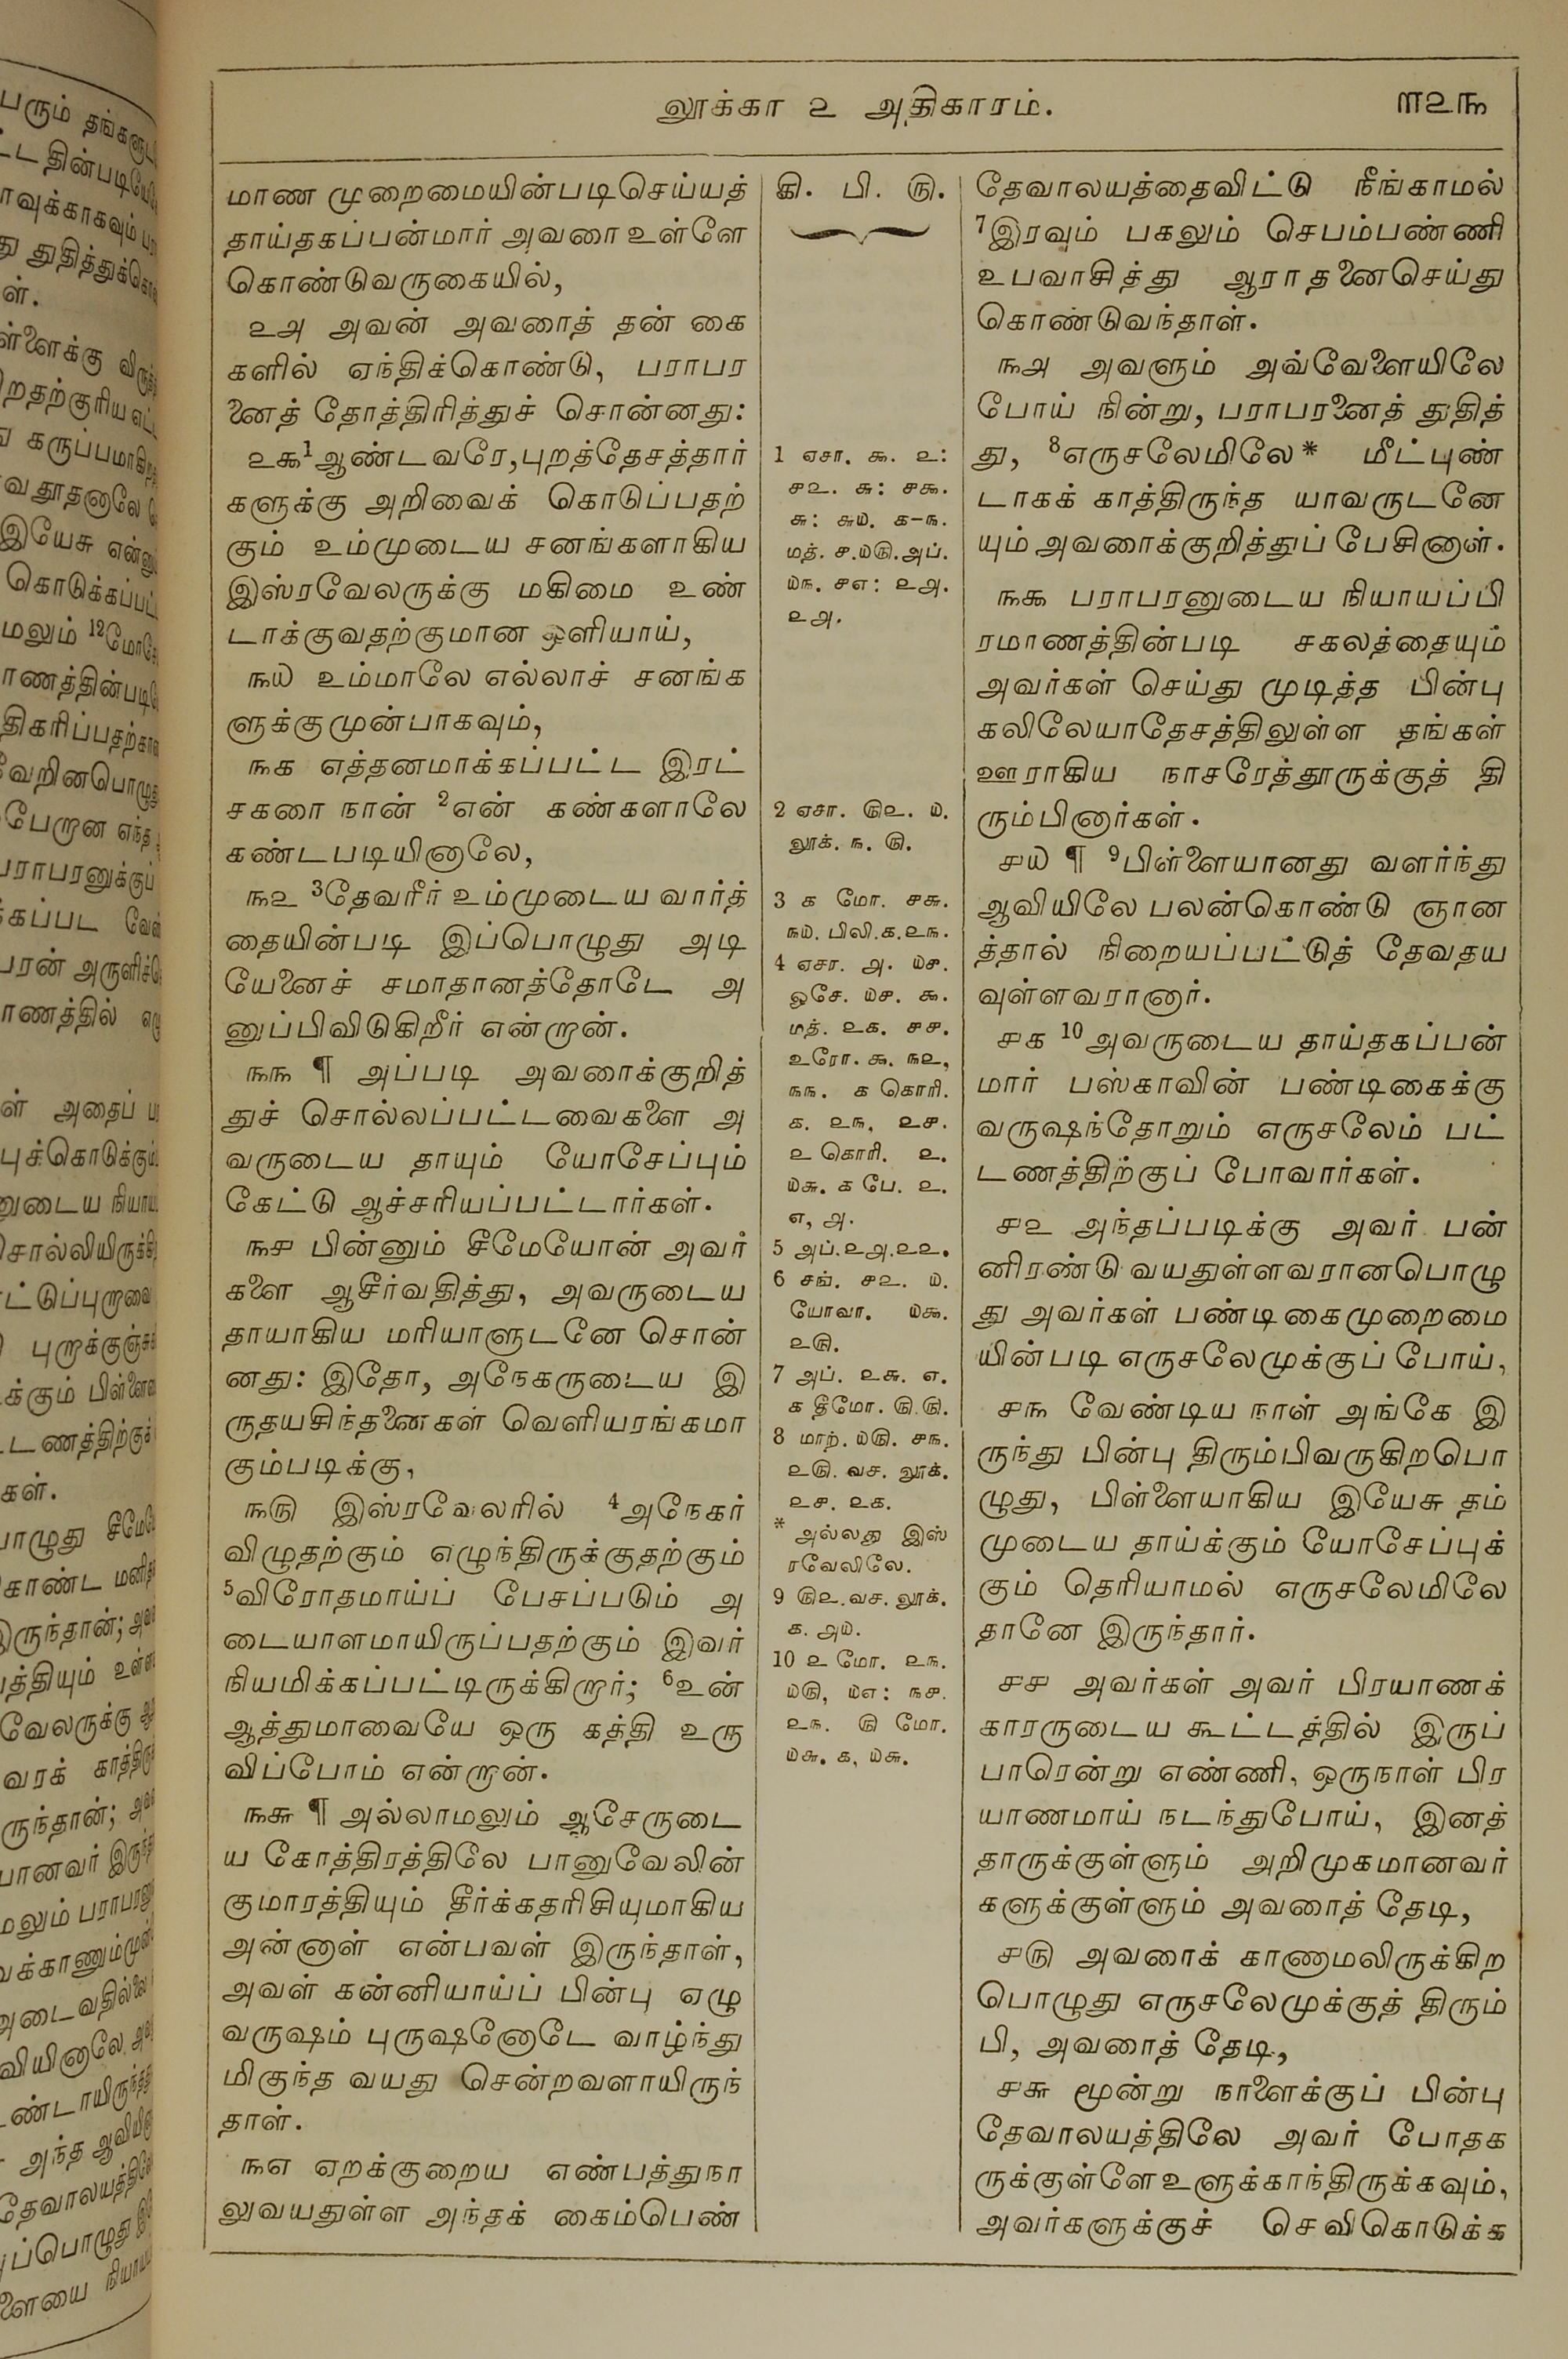 லூக்கா ௨ அதிகாரம்.
௱௨௩
மாண முறைமையின்படிசெய்யத்
தாய்தகப்பன்மார் அவரை உள்ளே
கொண்டுவருகையில்,
௨௮ அவன் அவரைத் தன் கை
களில் ஏந்திக்கொண்டு, பராபர
னைத் தோத்திரித்துச் சொன்னது:
௨௯ 1ஆண்டவரே,புறத்தேசத்தார்
களுக்கு அறிவைக் கொடுப்பதற்
கும் உம்முடைய சனங்களாகிய
இஸ்ரவேலருக்கு மகிமை உண்
டாக்குவதற்குமான ஒளியாய்,
௩௰ உம்மாலே எல்லாச் சனங்க
ளுக்குமுன்பாகவும்,
௩௧ எத்தனமாக்கப்பட்ட இரட்
சகரை நான் 2என் கண்களாலே
கண்டபடியினாலே,
௩௨ 3தேவரீர் உம்முடைய வார்த்
தையின்படி இப்பொழுது அடி
யேனைச் சமாதானத்தோடே அ
னுப்பிவிடுகிறீர் என்றான்.
௩௩ ¶ அப்படி அவரைக்குறித்
துச் சொல்லப்பட்டவைகளை அ
வருடைய தாயும் யோசேப்பும்
கேட்டு ஆச்சரியப்பட்டார்கள்.
௩௪ பின்னும் சீமேயோன் அவர்
களை ஆசீர்வதித்து, அவருடைய
தாயாகிய மரியாளுடனே சொன்
னது: இதோ, அநேகருடைய இ
ருதயசிந்தனைகள் வெளியரங்கமா
கும்படிக்கு,
௩௫ இஸ்ரவேலரில் 4அநேகர்
விழுதற்கும் எழுந்திருக்குதற்கும்
5விரோதமாய்ப் பேசப்படும் அ
டையாளமாயிருப்பதற்கும் இவர்
நியமிக்கப்பட்டிருக்கிறார்; 6உன்
ஆத்துமாவையே ஒரு கத்தி உரு
விப்போம் என்றான்.
௩௬ ¶ அல்லாமலும் ஆசேருடை
ய கோத்திரத்திலே பானுவேலின்
குமாரத்தியும் தீர்க்கதரிசியுமாகிய
அன்னாள் என்பவள் இருந்தாள்,
அவள் கன்னியாய்ப் பின்பு ஏழு
வருஷம் புருஷனோடே வாழ்ந்து
மிகுந்த வயது சென்றவளாயிருந்
தாள்.
௩௭ ஏறக்குறைய எண்பத்துநா
லுவயதுள்ள அந்தக் கைம்பெண்
கி. பி. ௫.
1 ஏசா. ௯. ௨:
௪௨. ௬: ௪௯.
௬: ௬௰. ௧-௩.
மத். ௪.௰௫.அப்.
௰௩. ௪௭: ௨௮.
௨௮.
2 ஏசா. ௫௨. ௰.
லூக். ௩. ௫.
3 ௧ மோ. ௪௬.
௩௰. பிலி.௧.௨௩.
4 ஏசா. ௮. ௰௪.
ஓசே. ௰௪. ௯.
மத். ௨௧. ௪௪.
உரோ. ௯. ௩௨,
௩௩. ௧ கொரி.
௧. ௨௩, ௨௪.
௨ கொரி. ௨.
௰௬. ௧ பே. ௨.
௭, ௮.
5 அப்.௨௮.௨௨.
6 சங். ௪௨. ௰.
யோவா. ௰௯.
௨௫.
7 அப். ௨௬. ௭.
௧ தீமோ. ௫.௫.
8 மாற். ௰௫. ௪௩.
௨௫. வச. லூக்.
௨௪. ௨௧.
* அல்லது இஸ்
ரவேலிலே.
9 ௫௨.வச. லூக்.
௧. ௮௰.
10 ௨ மோ. ௨௩.
௰௫, ௰௭: ௩௪.
௨௩. ௫ மோ.
௰௬. ௧, ௰௬.
தேவாலயத்தைவிட்டு நீங்காமல்
7இரவும் பகலும் செபம்பண்ணி
உபவாசித்து ஆராதனைசெய்து
கொண்டுவந்தாள்.
௩௮ அவளும் அவ்வேளையிலே
போய் நின்று, பராபரனைத் துதித்
து, 8எருசலேமிலே* மீட்புண்
டாகக் காத்திருந்த யாவருடனே
யும் அவரைக்குறித்துப் பேசினாள்.
௩௯ பராபரனுடைய நியாயப்பி
ரமாணத்தின்படி சகலத்தையும்
அவர்கள் செய்து முடித்த பின்பு
கலிலேயாதேசத்திலுள்ள தங்கள்
ஊராகிய நாசரேத்தூருக்குத் தி
ரும்பினார்கள்.
௪௰ ¶ 9பிள்ளையானது வளர்ந்து
ஆவியிலே பலன்கொண்டு ஞான
த்தால் நிறையப்பட்டுத் தேவதய
வுள்ளவரானார்.
௪௧ 10அவருடைய தாய்தகப்பன்
மார் பஸ்காவின் பண்டிகைக்கு
வருஷந்தோறும் எருசலேம் பட்
டணத்திற்குப் போவார்கள்.
௪௨ அந்தப்படிக்கு அவர் பன்
னிரண்டு வயதுள்ளவரானபொழு
து அவர்கள் பண்டிகைமுறைமை
யின்படி எருசலேமுக்குப் போய்,
௪௩ வேண்டிய நாள் அங்கே இ
ருந்து பின்பு திரும்பிவருகிறபொ
ழுது, பிள்ளையாகிய இயேசு தம்
முடைய தாய்க்கும் யோசேப்புக்
கும் தெரியாமல் எருசலேமிலே
தானே இருந்தார்.
௪௪ அவர்கள் அவர் பிரயாணக்
காரருடைய கூட்டத்தில் இருப்
பாரென்று எண்ணி, ஒருநாள் பிர
யாணமாய் நடந்துபோய், இனத்
தாருக்குள்ளும் அறிமுகமானவர்
களுக்குள்ளும் அவரைத் தேடி,
௪௫ அவரைக் காணாமலிருக்கிற
பொழுது எருசலேமுக்குத் திரும்
பி, அவரைத் தேடி,
௪௬ மூன்று நாளைக்குப் பின்பு
தேவாலயத்திலே அவர் போதக
ருக்குள்ளே உளுக்காந்திருக்கவும்,
அவர்களுக்குச் செவிகொடுக்க